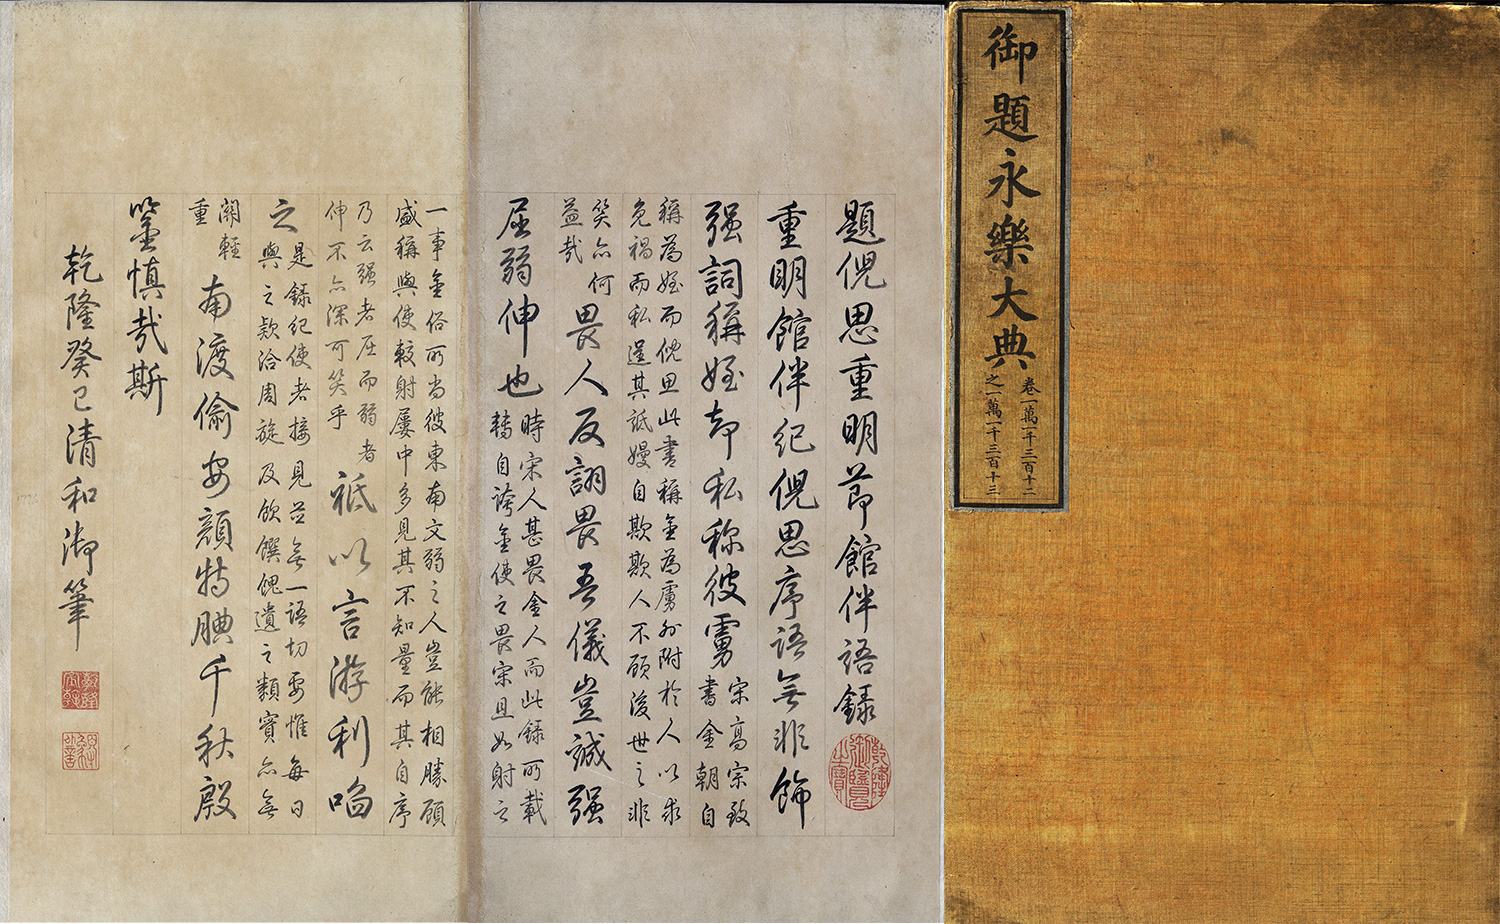 御題永樂大典
卷一萬一千三百十二
之一萬一千三百十三
題倪思重明節館伴語錄
乾隆御覽之寶
重明館伴紀倪思序語無非飾
强詞稱姪却私称彼虜
宋高宗致
書金朝自
稱為姪而倪思此書稱金為虜外附於人以求
免禍而私逞其詆嫚自欺欺人不顧後世之非
笑亦何
益哉
畏人反詡畏吾儀豈誠强
屈弱伸也
時宋人甚畏金人而此錄所載
轉自誇金使之畏宋且如射之
一事金俗所尚彼東南文弱之人豈能相勝顧
盛稱與使較射屢中多見其不知量而其自序
乃云强者屈而弱者
伸不亦深可笑乎
祗以言游利啗
之
是錄紀使者接見並無一語切要惟每日
與之款洽周旋及飲饌餽遺之類實亦無
關輕
重
南渡偷安顏特腆千秋殷
鑒慎哉斯
乾隆癸巳清和御筆
乾隆宸翰